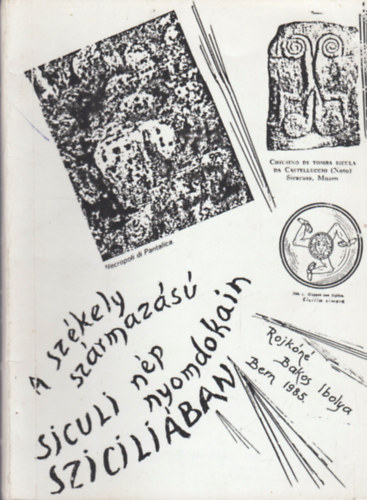 CHIUSINO DI TOMBA SICULA
DA CASTELLUCCIO (NOTO)
Siracusa, Museo
Necropoli di Pantalica
A székely
származású
siculi nép
nyomdokain
SZICILIÁBAN
Rojkóné
Bakos Ibolya
Bern 1985.